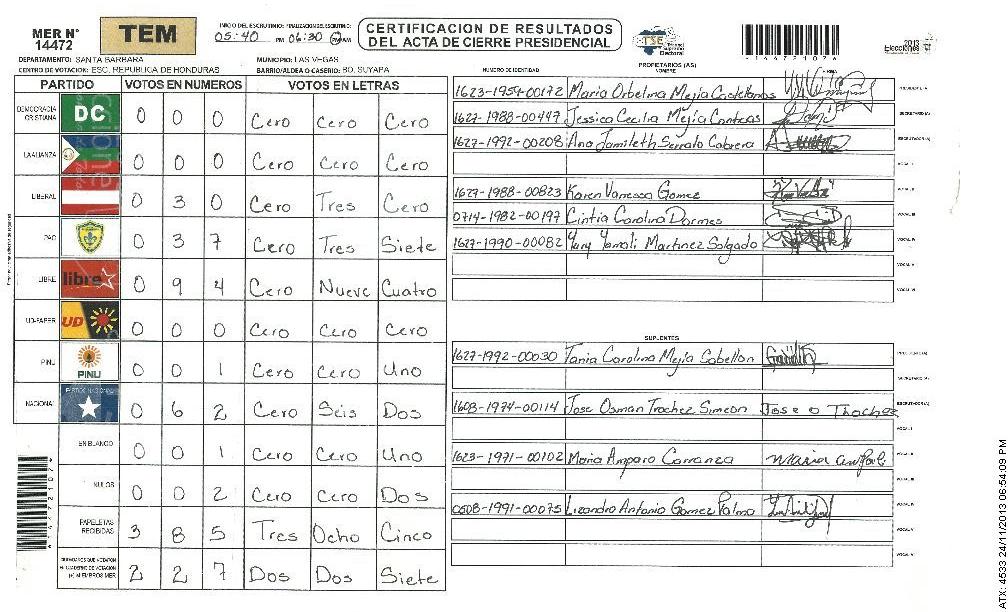 MER N° 14472
TEM
INICIO DEL ESCRUTINIO: FINALIZACION DEL ESCRUTINIO:
05:40 PM 06:30 AM
CERTIFICACION DE RESULTADOS
DEL ACTA DE CIERRE PRESIDENCIAL
TSE Tribunal Supremo Electoral
2013 Elecciones
DEPARTAMENTO: SANTA BARBARA MUNICIPIO: LAS VEGAS
CENTRO DE VOTACION: ESC. REPUBLICA DE HONDURAS BARRIO/ALDEA O CASERIO: BO. SUYAPA
PARTIDO VOTOS EN NUMEROS VOTOS EN LETRAS
DEMOCRACIA CRISTIANA DC 0 0 0 Cero Cero Cero
LA ALIANZA 0 0 0 Cero Cero Cero
LIBERAL 0 3 0 Cero Tres Cero
PAC 0 3 7 Cero Tres Siete
LIBRE libre 0 9 4 Cero Nueve Cuatro
UD-FAPER UD 0 0 0 Cero Cero Cero
PINU PINU 0 0 1 Cero Cero Uno
NACIONAL PARTIDO NACIONAL 0 6 2 Cero Seis Dos
EN BLANCO 0 0 1 Cero Cero Uno
NULOS 0 0 2 Cero Cero Dos
PAPELETAS RECIBIDAS 3 8 5 Tres Ocho Cinco
CIUDADANOS QUE VOTARON S/ CUADERNO DE VOTACION (+) MIEMBROS MER 2 2 7 Dos Dos Siete
PROPIETARIOS (AS)
NUMERO DE IDENTIDAD NOMBRE FIRMA
1623-1954-00172 Maria Orbelina Mejia Castellanos PRESIDENTE/A
1627-1988-00447 Jessica Cecilia Mejia Contreras SECRETARIO (A)
1627-1992-00208 Ana Jamileth Serrato Cabrera ESCRUTADOR (A)
VOCAL I
1627-1988-00823 Karen Vanessa Gomez VOCAL II
0714-1982-00197 Cintia Carolina Dormes VOCAL III
1627-1990-00082 Yury Yamali Martinez Salgado VOCAL IV
VOCAL V
VOCAL VI
SUPLENTES
1627-1992-00030 Tania Carolina Mejia Sabellon PRESIDENTE(A)
SECRETARIO (A)
1608-1974-00114 Jose Osman Trochez Simeon Jose O Trochez ESCRUTADOR (A)
VOCAL I
1623-1971-00102 Maria Amparo Carranza VOCAL II
VOCAL III
0508-1991-00075 Lizandro Antonio Gomez Palmo VOCAL IV
VOCAL V
VOCAL VI
ATX: 4533 24/11/2013 06:54:09 PM